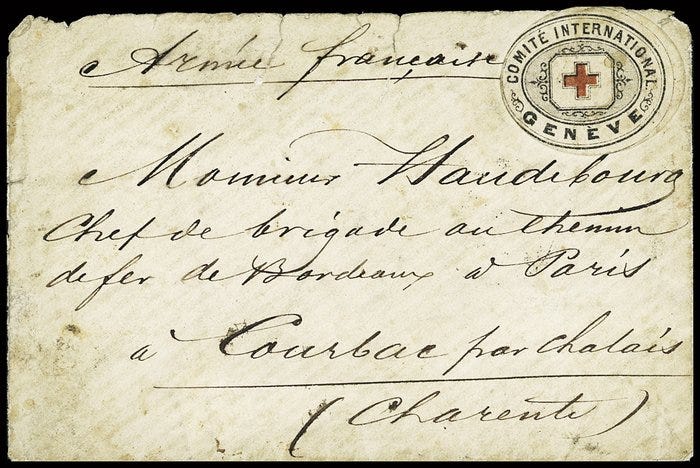 Armée française
COMITÉ INTERNATIONAL
GENÈVE
Monsieur Haudebourg
Chef de brigade au Chemin
de fer de Bordeaux à Paris
à Courlac par Chalais
(Charente)